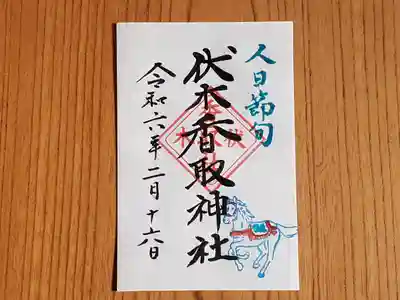 人日節句
伏木香取神社
令和六年二月十六日